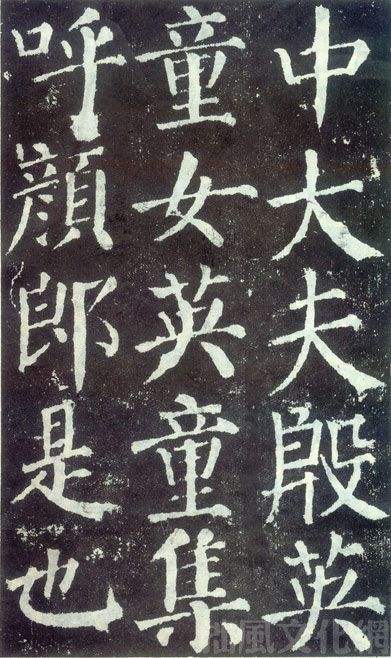 中大夫殷英
童女英童集
呼顔郎是也
風文化網